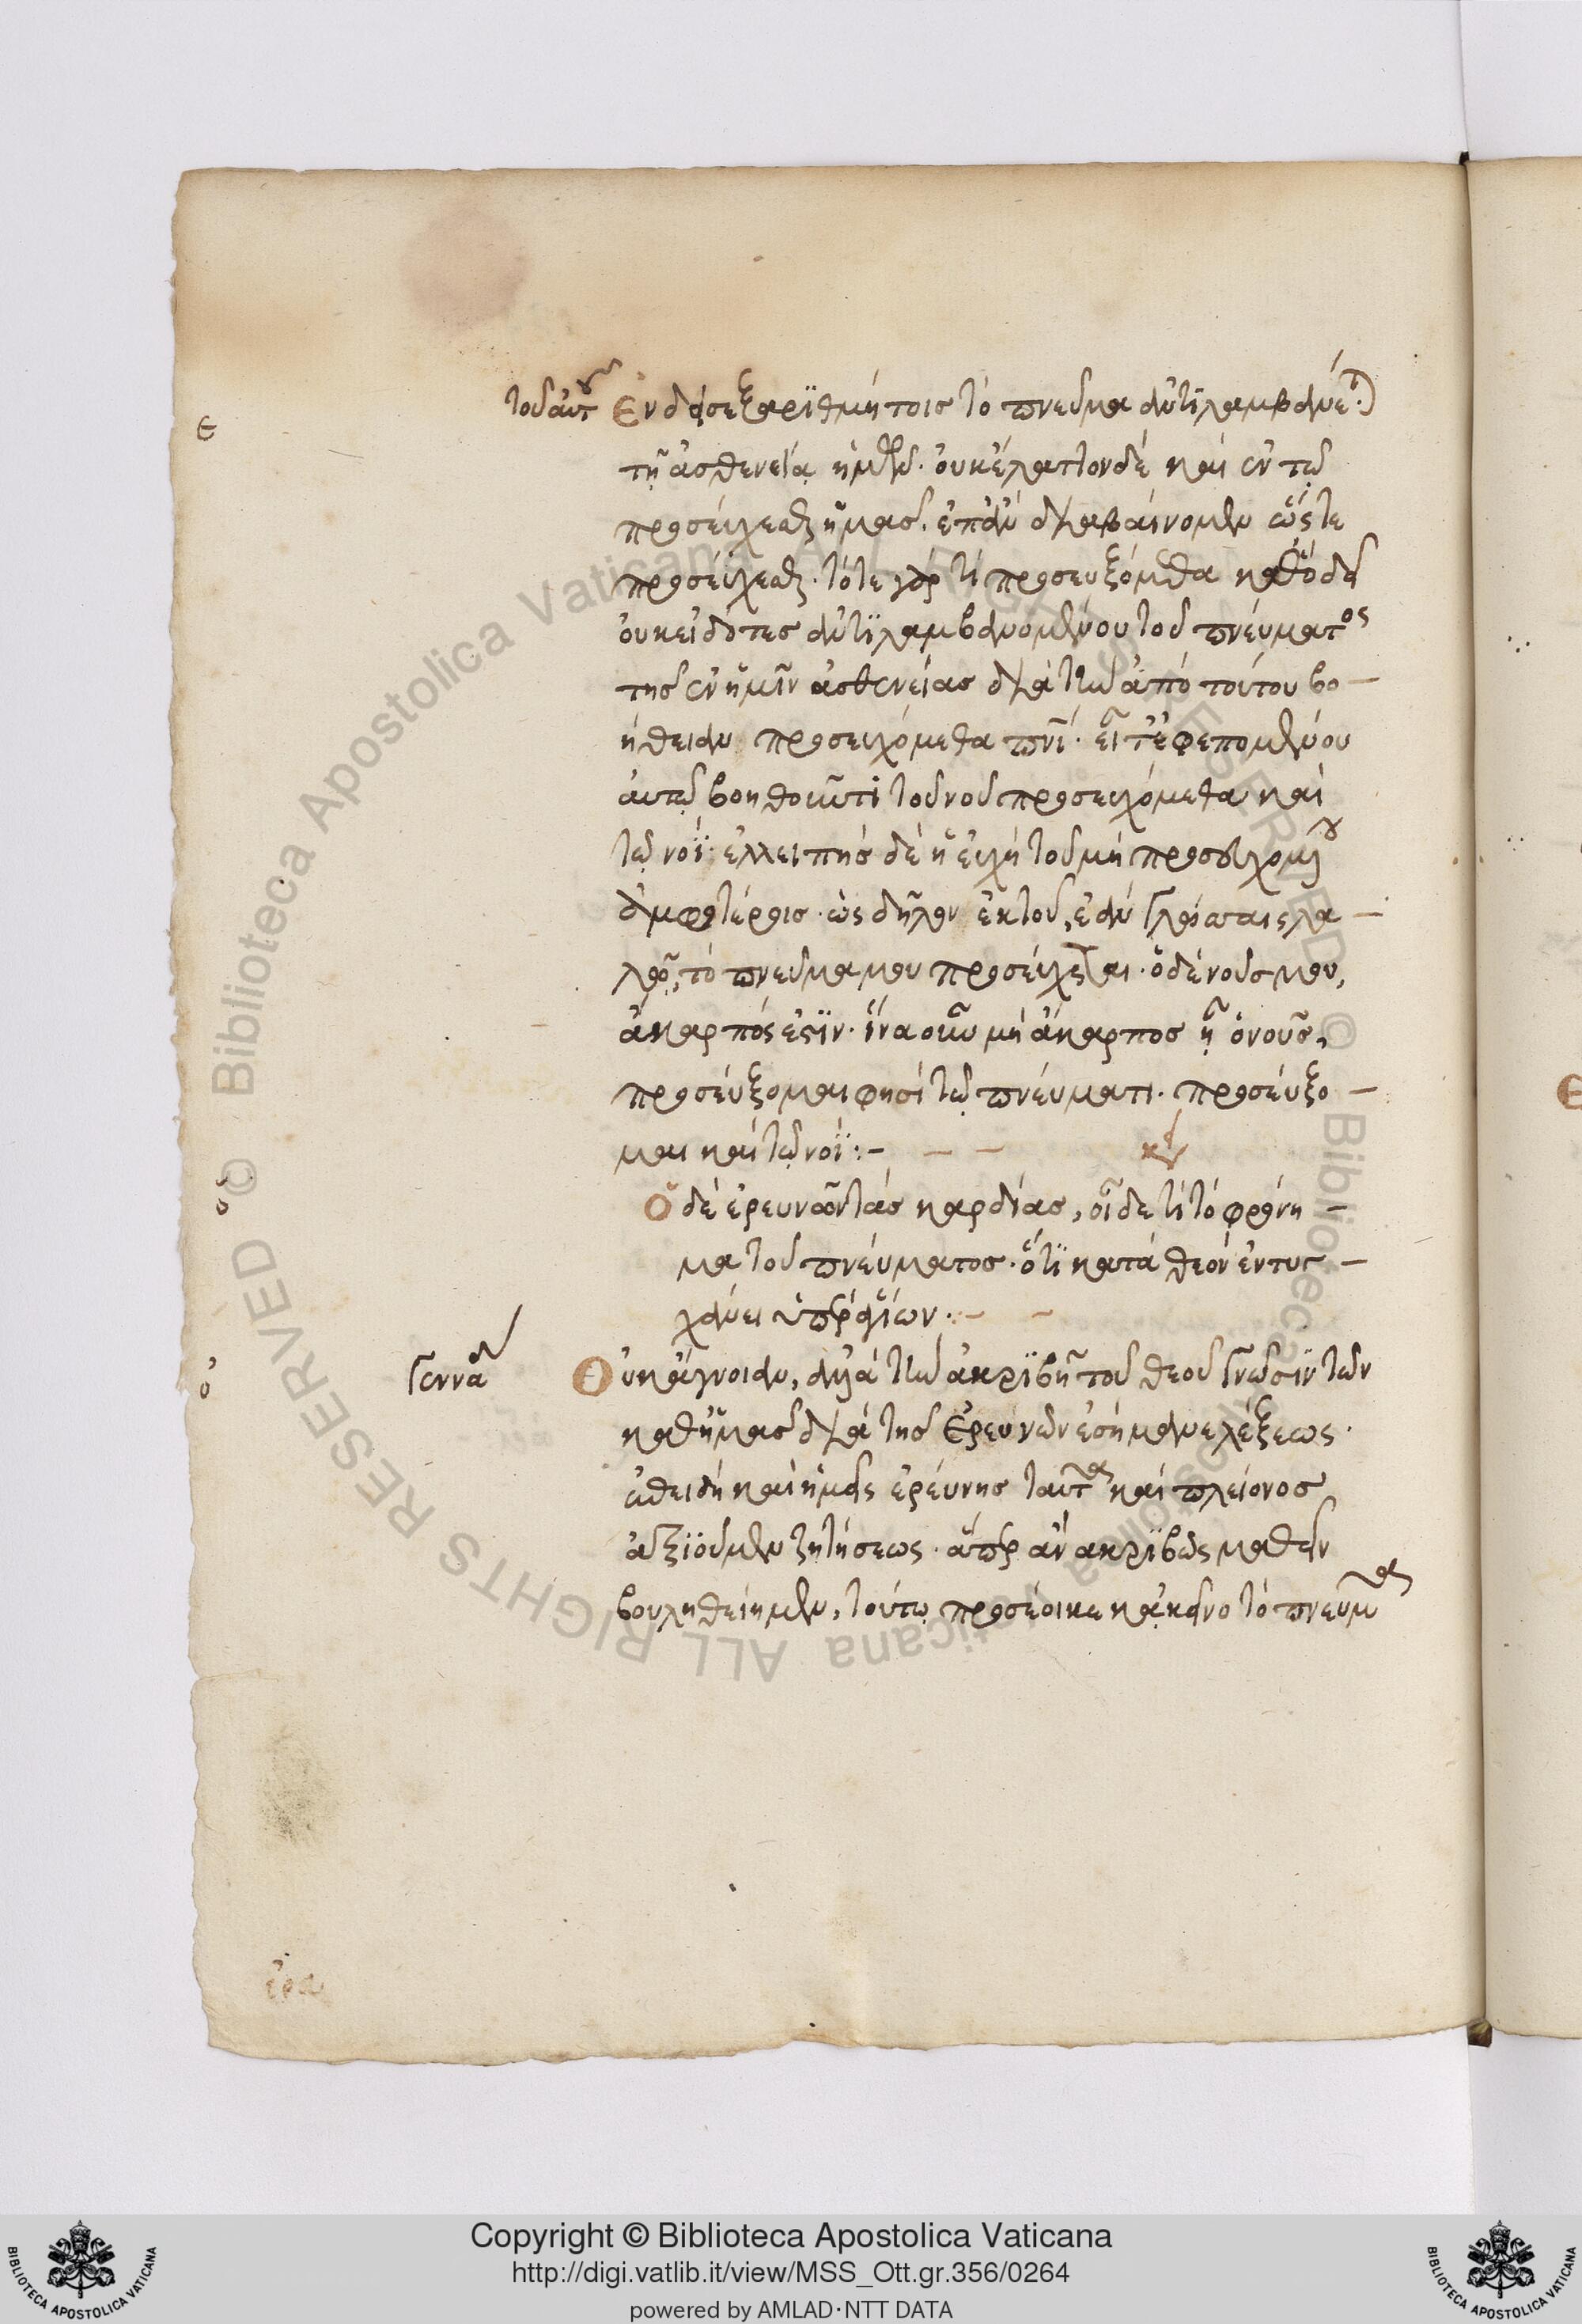 τοῦ αὐτοῦ Ἐν δυσεξαριθμήτοις τὸ πνεῦμα ἀντιλαμβάνεται
ε
τῇ ἀσθενείᾳ ἡμῶν· οὐκ ἔλαττον δὲ καὶ ἐν τῷ
προσεύχεσθαι ἡμᾶς, ἐπὰν διαβαίνομεν ὥστε
προσεύχεσθαι· τότε γὰρ τί προσευξόμεθα καθὸ δεῖ
οὐκ εἰδότες ἀντιλαμβανομένου τοῦ πνεύματος
τῆς ἐν ἡμῖν ἀσθενείας διὰ τὴν ἀπὸ τούτου βο–
ήθειαν προσευχόμεθα πνι· εἶτ' ἐφεπομένου
αὐτῷ βοηθοῦντι τοῦ νοῦ προσευχόμεθα καὶ
τῷ νοΐ· ἐλλειπὴς δὲ ἡ εὐχὴ τοῦ μὴ προσευχομένου
ἀμφοτέροις· ὡς δῆλον ἐκ τοῦ, ἐὰν γλώσσαις λα–
λῶ, τὸ πνεῦμα μου προσεύχεται· ὁ δὲ νοῦς μου,
ἄκαρπός ἐστιν· ἵνα οὖν μὴ ἄκαρπος ᾖ ὁ νοῦς,
προσεύξομαι φησὶ τῷ πνεύματι· προσεύξο–
μαι καὶ τῷ νοΐ :– – –
Ὁ δὲ ἐρευνῶν τὰς καρδίας, οἶδε τί τὸ φρόνη–
μα τοῦ πνεύματος· ὅτι κατὰ θεὸν ἐντυγ–
χάνει ὑπὲρ ἁγίων :– –
γεννα Οὐκ ἄγνοιαν, ἀλλὰ τὴν ἀκριβῆ τοῦ θεοῦ γνῶσιν τῶν
καθ' ἡμᾶς διὰ τῆς ἐρευνῶν ἐσήμανε λέξεως·
ἐπειδὴ καὶ ἡμεῖς ἐρεύνης ταῦτα καὶ πλείονος
ἀξιοῦμεν ζητήσεως· ἅπερ ἂν ἀκριβῶς μαθεῖν
βουληθείημεν, τούτῳ προσέοικε κἀκεῖνο τὸ πνεῦμα
ἐρα
Copyright © Biblioteca Apostolica Vaticana
http://digi.vatlib.it/view/MSS_Ott.gr.356/0264
powered by AMLAD·NTT DATA